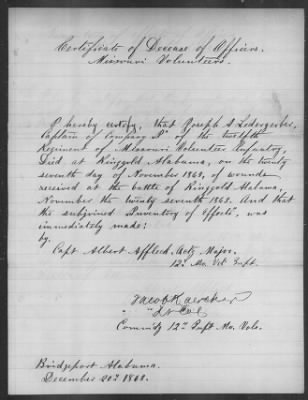 Certificate of Decease of Officers.
Missouri Volunteers.
I hereby certify, that Joseph A Ledergerber,
Captain of Company "I" of the twelfth
Regiment of Missouri Volunteer Infantry,
Died at Ringgold Alabama, on the twenty
seventh day of November 1863, of wounds
received at the battle of Ringgold Alabama,
November the twenty seventh 1863. And that
the subjoined "Inventory of Effects" was
immediately made:
by.
Capt Albert Affleck, Actg Major.
12th Mo. Vol Inft.
Jacob Kaercher
Lt Col
Commdg 12th Inft Mo. Vols.
Bridgeport Alabama.
December 20th 1863.